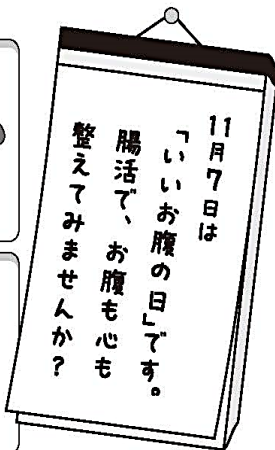 11月7日は
「いいお腹の日」です。
腸活で、お腹も心も
整えてみませんか？